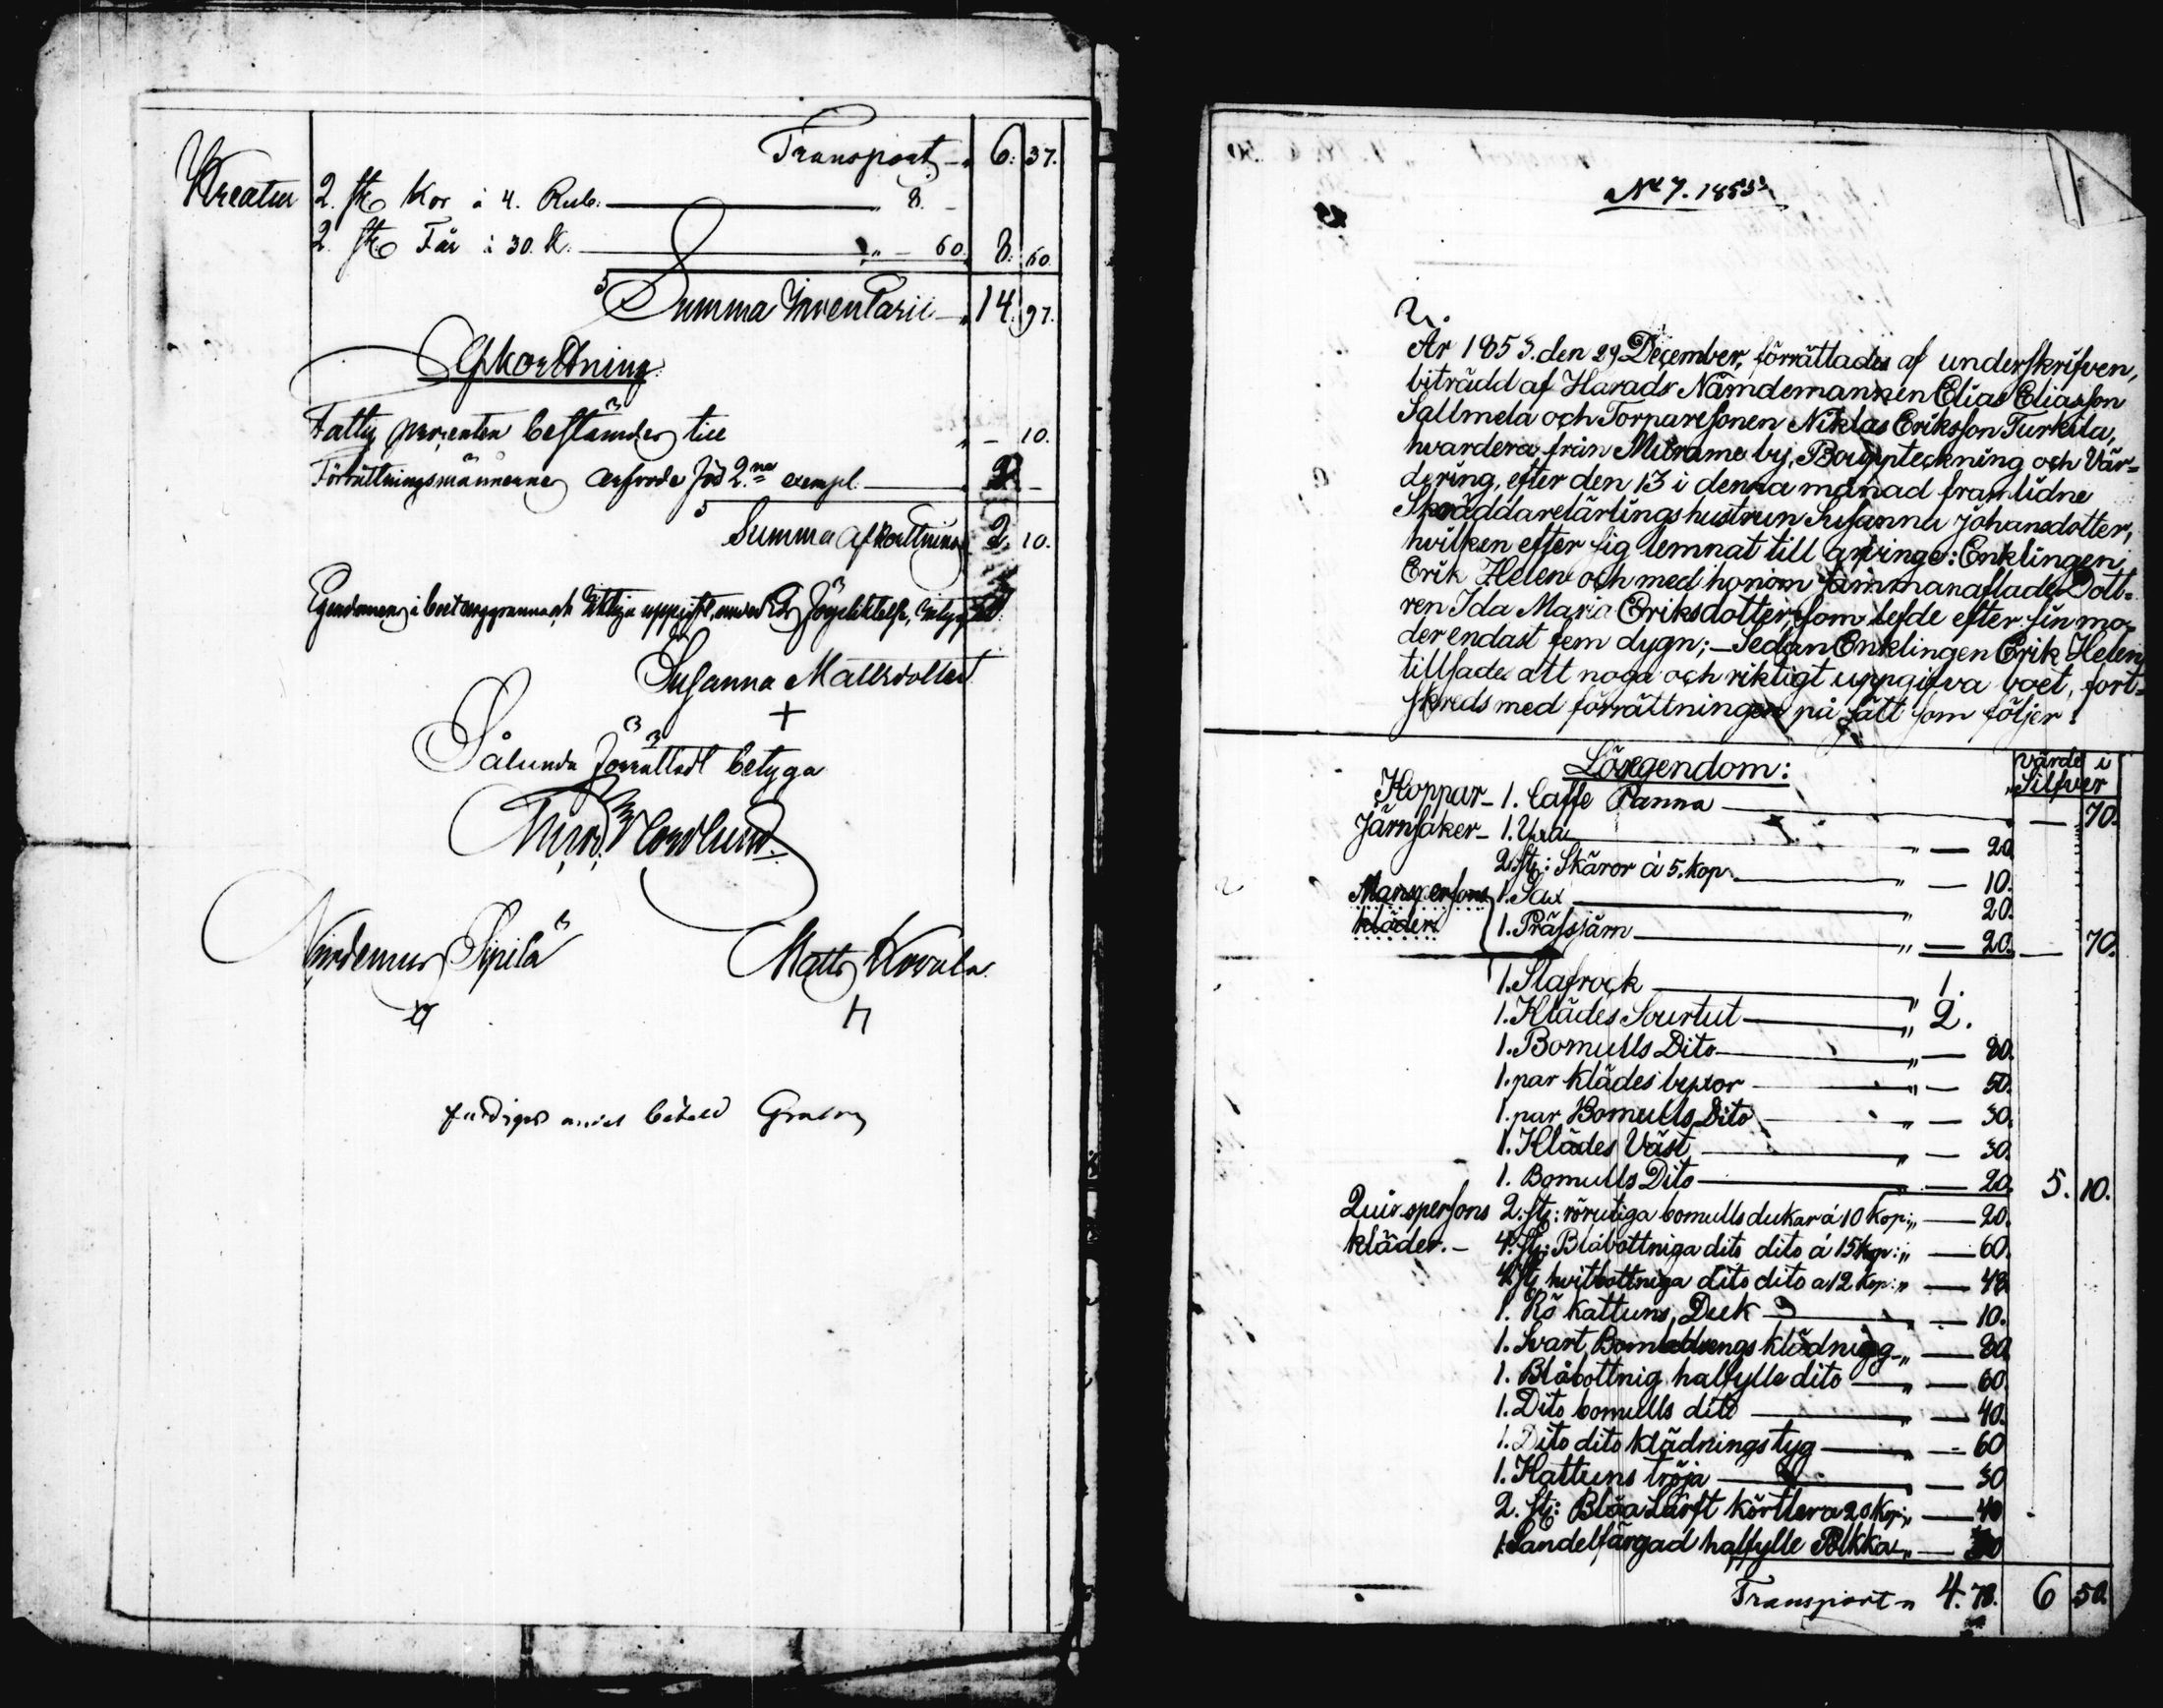 Transport 6. 37.
Kreatur 2. st Kor à 4. Rub. 8. –
2. st Får à 30. K. „ – 60. 8. 60.
Summa Inventarii 14. 97.
Afkortning
Fattig procenten bestämdes till „ – 10.
Förrättningsmännerne arfvode för 2.ne exempl. 2. –
Summa afkortning 2. 10.
Susanna Mattsdotter
+
Sålunda förrättadt betyga
Nordlund
Nicodemus Sipilä Matts Kovala
Nº 7. 1853
År 1853. den 29 December, förrättades af underskrifven,
biträdd af Harads Nämdemannen Elias Eliasson
Sallmela och Torparesonen Niklas Eriksson Turkila,
hvardera från Mitrame by, Bouppteckning och Vär=
dering, efter den 13 i denna månad framlidne
Skräddarelärlingshustrun Susanna Johansdotter,
hvilken efter sig lemnat till arfvinge: Enklingen
Erik Helen och med honom sammanaflade Dott=
ren Ida Maria Eriksdotter, som lefde efter sin mo=
der endast fem dygn; – Sedan Enklingen Erik Helen
tillsades att noga och riktigt uppgifva boet, fort=
skreds med förrättningen på sätt som följer:
Lösegendom: värde i Silfver
Koppar – 1. Caffe Panna — 70.
Järnsaker – 1. Yxa „ — 20
2. st: Skäror á 5. kop. „ — 10.
Manspersons 1. Sax „ 20.
kläder 1. Prässjärn „ — 20. — 70.
1. Slafrock „ 1.
1. Klädes Sourtut „ 2.
1. Bomulls Dito „ — 80.
1. par klädes byxor „ — 50.
1. par Bomulls Dito „ — 30.
1. Klädes Väst „ — 30.
1. Bomulls Dito „ — 20. 5. 10.
Quinspersons 2. st: rörutiga bomulls dukar á 10 kop: „ — 20.
kläder. – 4. st: Blåbottniga dito dito á 15 kop: „ — 60.
4. st hvitbottniga dito dito a 12 kop: „ — 48
1. Rö kattuns Duk „ — 10.
1. Svart klädning „ — 80.
1. Blåbottnig halfylle dito „ — 60.
1. Dito bomulls dito „ — 40.
1. Dito dito klädningstyg „ — 60
1. Kattuns tröja „ — 30
2. st: Blåa Lärft körtlar a 20 kop: „ — 40
1. Sandelfärgad halfylle Polkka „ — 30
Transport „ 4. 78. 6 50.